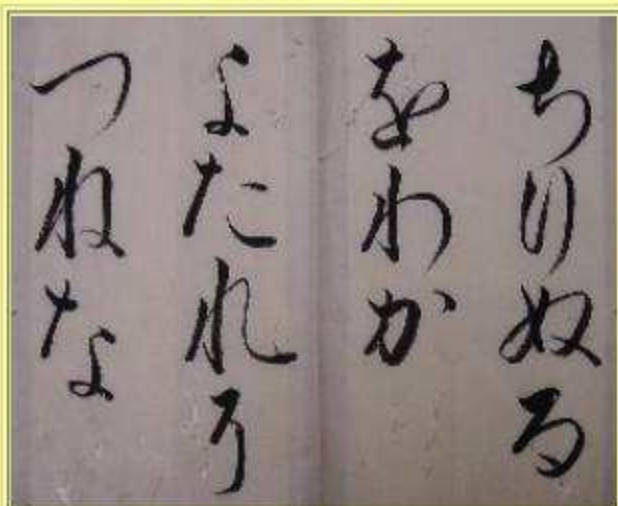 ちりぬる
をわか
よたれそ
つねな